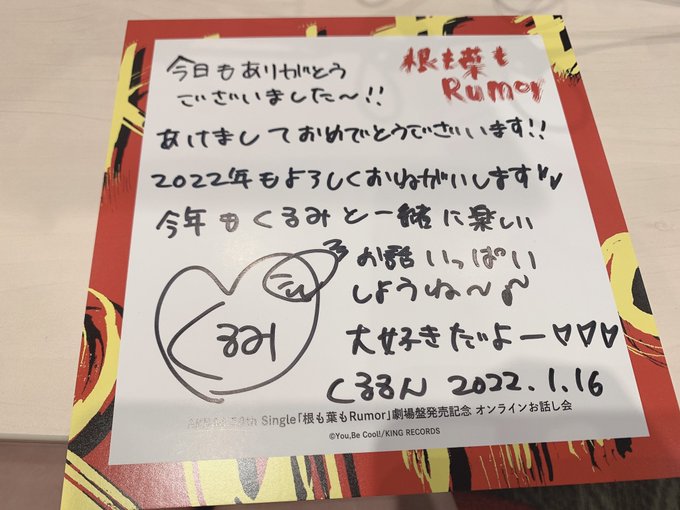 今日もありがとう
ございました〜!!
根も葉も
Rumor
あけましておめでとうございます!!
2022年もよろしくおねがいします♡♡
今年もくるみと一緒に楽しい
お話いっぱい
しようね〜♪
くるみ
大好きだよー♡♡♡
くるるん 2022.1.16
AKB48 58th Single「根も葉もRumor」劇場盤発売記念 オンラインお話し会
©You,Be Cool!/KING RECORDS